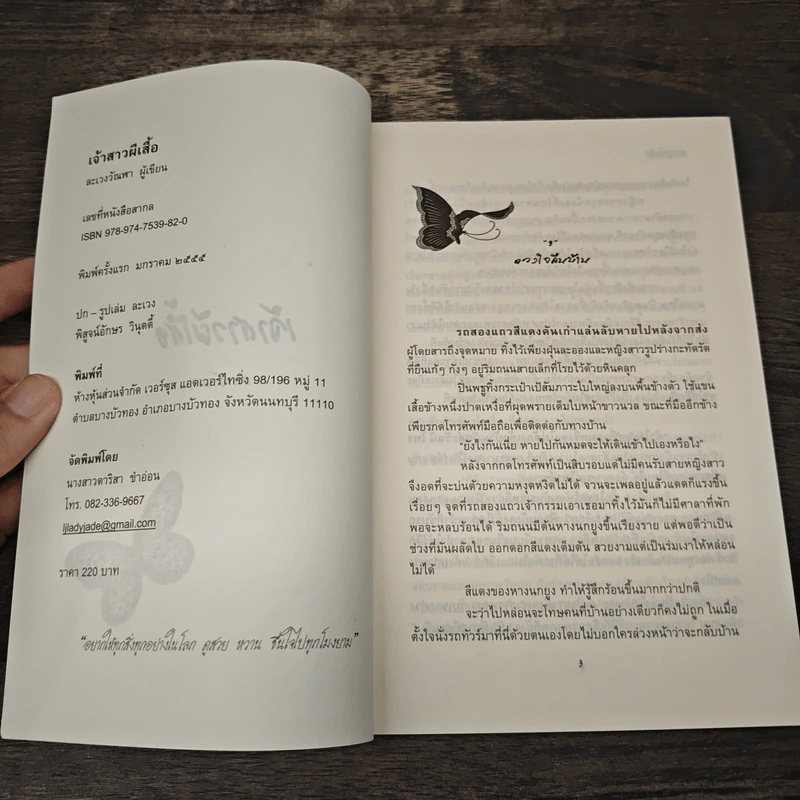 เจ้าสาวผีเสื้อ
ละเวงวัณพา ผู้เขียน
เลขที่หนังสือสากล
ISBN 978-974-7539-82-0
พิมพ์ครั้งแรก มกราคม ๒๕๕๕
ปก – รูปเล่ม ละเวง
พิสูจน์อักษร วินุตตี้
พิมพ์ที่
ห้างหุ้นส่วนจำกัด เวอร์ซุส แอดเวอร์ไทซิ่ง 98/196 หมู่ 11
ตำบลบางบัวทอง อำเภอบางบัวทอง จังหวัดนนทบุรี 11110
จัดพิมพ์โดย
นางสาวดาริสา ขำอ่อน
โทร. 082-336-9667
ljladyjade@gmail.com
ราคา 220 บาท
"อยากให้ทุกสิ่งทุกอย่างในโลก ดูสวย หวาน ชื่นใจไปทุกโมงยาม"
-๑-
ดวงใจคืนบ้าน
รถสองแถวสีแดงคันเก่าแล่นลับหายไปหลังจากส่ง
ผู้โดยสารถึงจุดหมาย ทิ้งไว้เพียงฝุ่นละอองและหญิงสาวรูปร่างกะทัดรัด
ที่ยืนเก้ๆ กังๆ อยู่ริมถนนสายเล็กที่โรยไว้ด้วยหินคลุก
ปิ่นพธูทิ้งกระเป๋าเป้สัมภาระใบใหญ่ลงบนพื้นข้างตัว ใช้แขน
เสื้อข้างหนึ่งปาดเหงื่อที่ผุดพรายเต็มใบหน้าขาวนวล ขณะที่มืออีกข้าง
เพียรกดโทรศัพท์มือถือเพื่อติดต่อกับทางบ้าน
"ยังไงกันเนี่ย หายไปกันหมดจะให้เดินเข้าไปเองหรือไง"
หลังจากกดโทรศัพท์เป็นสิบรอบแต่ไม่มีคนรับสายหญิงสาว
จึงอดที่จะบ่นด้วยความหงุดหงิดไม่ได้ จวนจะเพลอยู่แล้วแดดก็แรงขึ้น
เรื่อยๆ จุดที่รถสองแถวเจ้ากรรมเอาเธอมาทิ้งไว้มันก็ไม่มีศาลาที่พัก
พอจะหลบร้อนได้ ริมถนนมีต้นหางนกยูงขึ้นเรียงราย แต่พอดีว่าเป็น
ช่วงที่มันผลัดใบ ออกดอกสีแดงเต็มต้น สวยงามแต่เป็นร่มเงาให้หล่อน
ไม่ได้
สีแดงของหางนกยูง ทำให้รู้สึกร้อนขึ้นมากกว่าปกติ
จะว่าไปหล่อนจะโทษคนที่บ้านอย่างเดียวก็คงไม่ถูก ในเมื่อ
ตั้งใจนั่งรถทัวร์มาที่นี่ด้วยตนเองโดยไม่บอกใครล่วงหน้าว่าจะกลับบ้าน
3